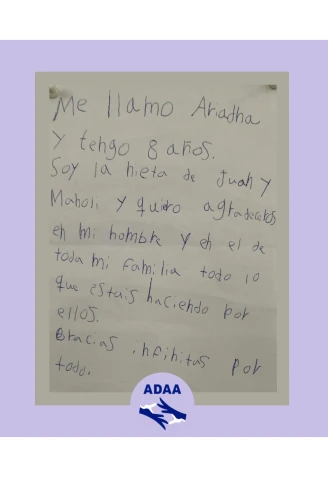 Me llamo Ariadna
y tengo 8 años.
Soy la nieta de Juan y
Manoli y quiero agradeceros
en mi nombre y en el de
toda mi familia todo lo
que estais haciendo por
ellos.
Gracias infinitas por
todo.
ADAA